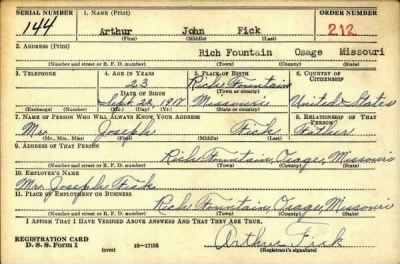 SERIAL NUMBER 1. NAME (Print) ORDER NUMBER
144 Arthur John Fick 212
(First) (Middle) (Last)
2. ADDRESS (Print)
Rich Fountain Osage Missouri
(Number and street or R. F. D. number) (Town) (County) (State)
3. TELEPHONE 4. AGE IN YEARS 5. PLACE OF BIRTH 6. COUNTRY OF CITIZENSHIP
23 Rich Fountain
DATE OF BIRTH (Town or county)
Sept. 22, 1917. Missouri United States
(Exchange) (Number) (Mo.) (Day) (Yr.) (State or country)
7. NAME OF PERSON WHO WILL ALWAYS KNOW YOUR ADDRESS 8. RELATIONSHIP OF THAT PERSON
Mr. Joseph Fick Father
(Mr., Mrs., Miss) (First) (Middle) (Last)
9. ADDRESS OF THAT PERSON
Rich Fountain, Osage, Missouri
(Number and street or R. F. D. number) (Town) (County) (State)
10. EMPLOYER'S NAME
Mr. Joseph Fick
11. PLACE OF EMPLOYMENT OR BUSINESS
Rich Fountain, Osage, Missouri
(Number and street or R. F. D. number) (Town) (County) (State)
I AFFIRM THAT I HAVE VERIFIED ABOVE ANSWERS AND THAT THEY ARE TRUE.
REGISTRATION CARD
D. S. S. Form 1 (over) 16—17105 Arthur Fick
(Registrant's signature)